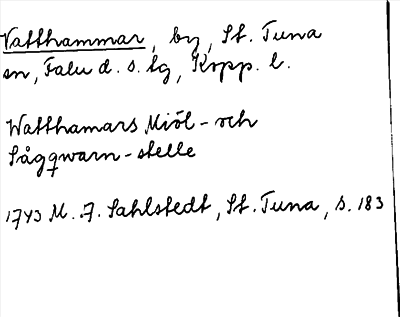 Vatthammar, by, St. Tuna
sn, Falu d. s. lg, Kopp. l.
Watthamars Miöl- och
Sågqwarn-stelle
1743 M. F. Sahlstedt, St. Tuna, s. 183